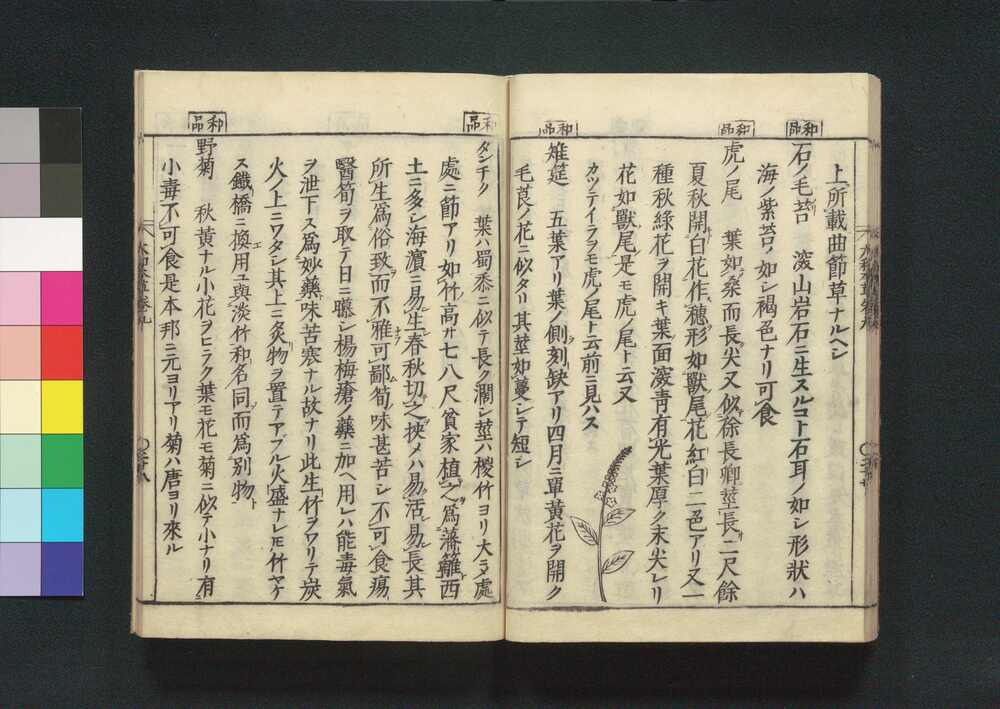 上所載曲節草ナルヘシ
和品
石ノ毛苔 深山岩石ニ生スルコト石耳ノ如シ形狀ハ
海ノ紫苔ノ如シ褐色ナリ可食
和品
虎ノ尾 葉如桑而長尖又似徐長卿莖長二尺餘
夏秋開白花作穗形如獸尾花紅白二色アリ又一
種秋綠花ヲ開キ葉面深青有光葉厚ク末尖レリ
花如獸尾是モ虎ノ尾ト云又
カツテイイラヲモ虎ノ尾ト云前ニ見ハス
和品
雉莚 五葉アリ葉ノ側刻缺アリ四月ニ單黃花ヲ開ク
毛莨ノ花ニ似タリ其莖如蔓シテ短シ
和品
タンチク 葉ハ蜀黍ニ似テ長ク濶シ莖ハ椶竹ヨリ大ナリ處
處ニ節アリ如竹高サ七八尺貧家植之爲藩籬西
土ニ多シ海濱ニ易生春秋切之挾メハ易活易長其
所生爲俗致而不雅可鄙筍味甚苦シ不可食瘍
醫筍ヲ取テ日ニ曝シ楊梅瘡ノ藥ニ加ヘ用レハ能毒氣
ヲ泄下ス爲妙藥味苦寒ナル故ナリ此生竹ヲワリテ炭
火ノ上ニワタシ其上ニ炙物ヲ置テアブル火盛ナレトモ竹ヤケ
ス鐵橋ニ換用ユ與淡竹和名同而爲別物
和品
野菊 秋黃ナル小花ヲヒラク葉モ花モ菊ニ似テ小ナリ有
小毒不可食是本邦ニ元ヨリアリ菊ハ唐ヨリ來ル